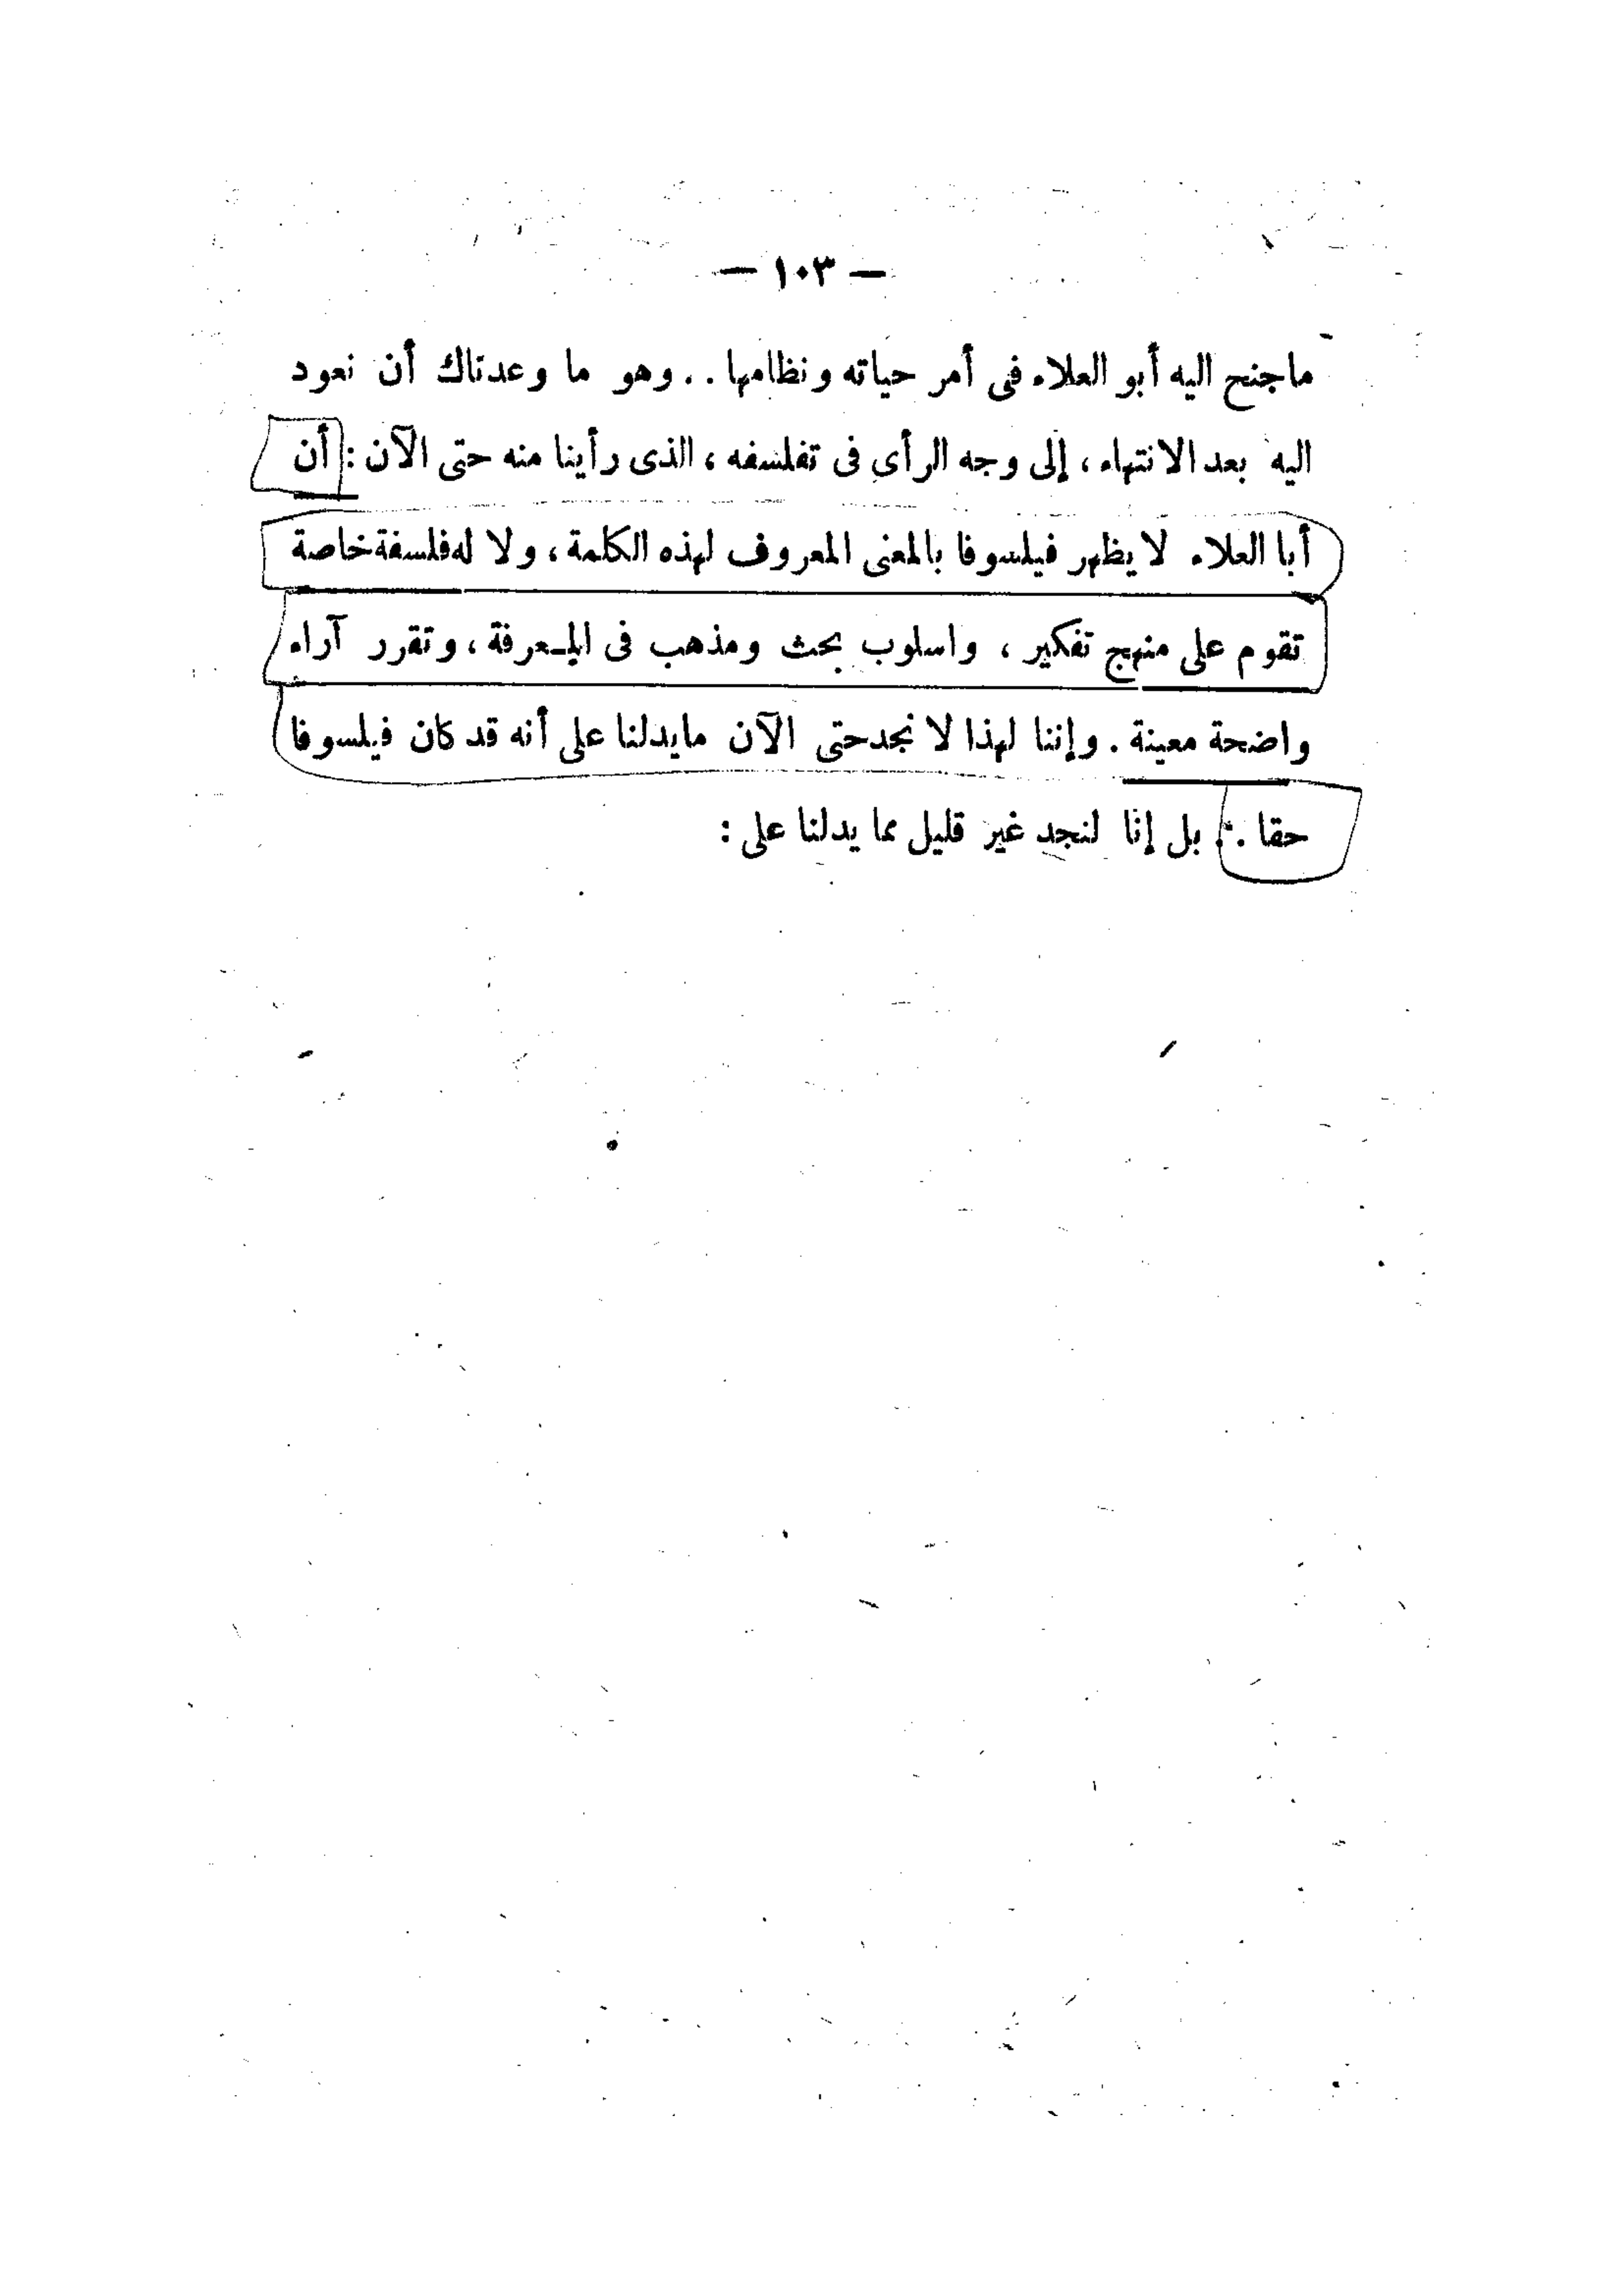 — ١٠٣ —
ماجنح اليه أبو العلاء فى أمر حياته ونظامها . . وهو ما وعدناك أن نعود
اليه بعد الانتهاء ، إلى وجه الرأى فى تفلسفه ، الذى رأينا منه حتى الآن : أن
أبا العلاء لا يظهر فيلسوفا بالمعنى المعروف لهذه الكلمة ، ولا له فلسفة خاصة
تقوم على منهج تفكير ، واسلوب بحث ومذهب فى المعرفة ، وتقرر آراء
واضحة معينة . وإننا لهذا لا نجد حتى الآن مايدلنا على أنه قد كان فيلسوفا
حقا . . بل إنا لنجد غير قليل مما يدلنا على :